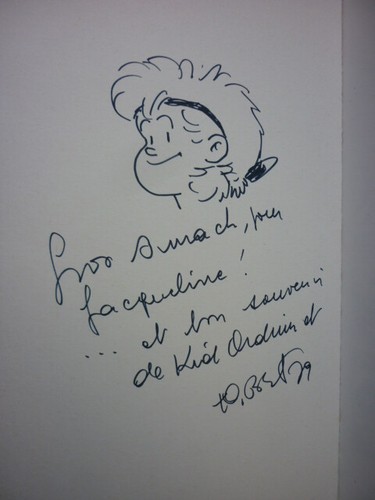 Gros Smack, pour
Jacqueline !
... et bon souvenir
de Kid Ordinn et